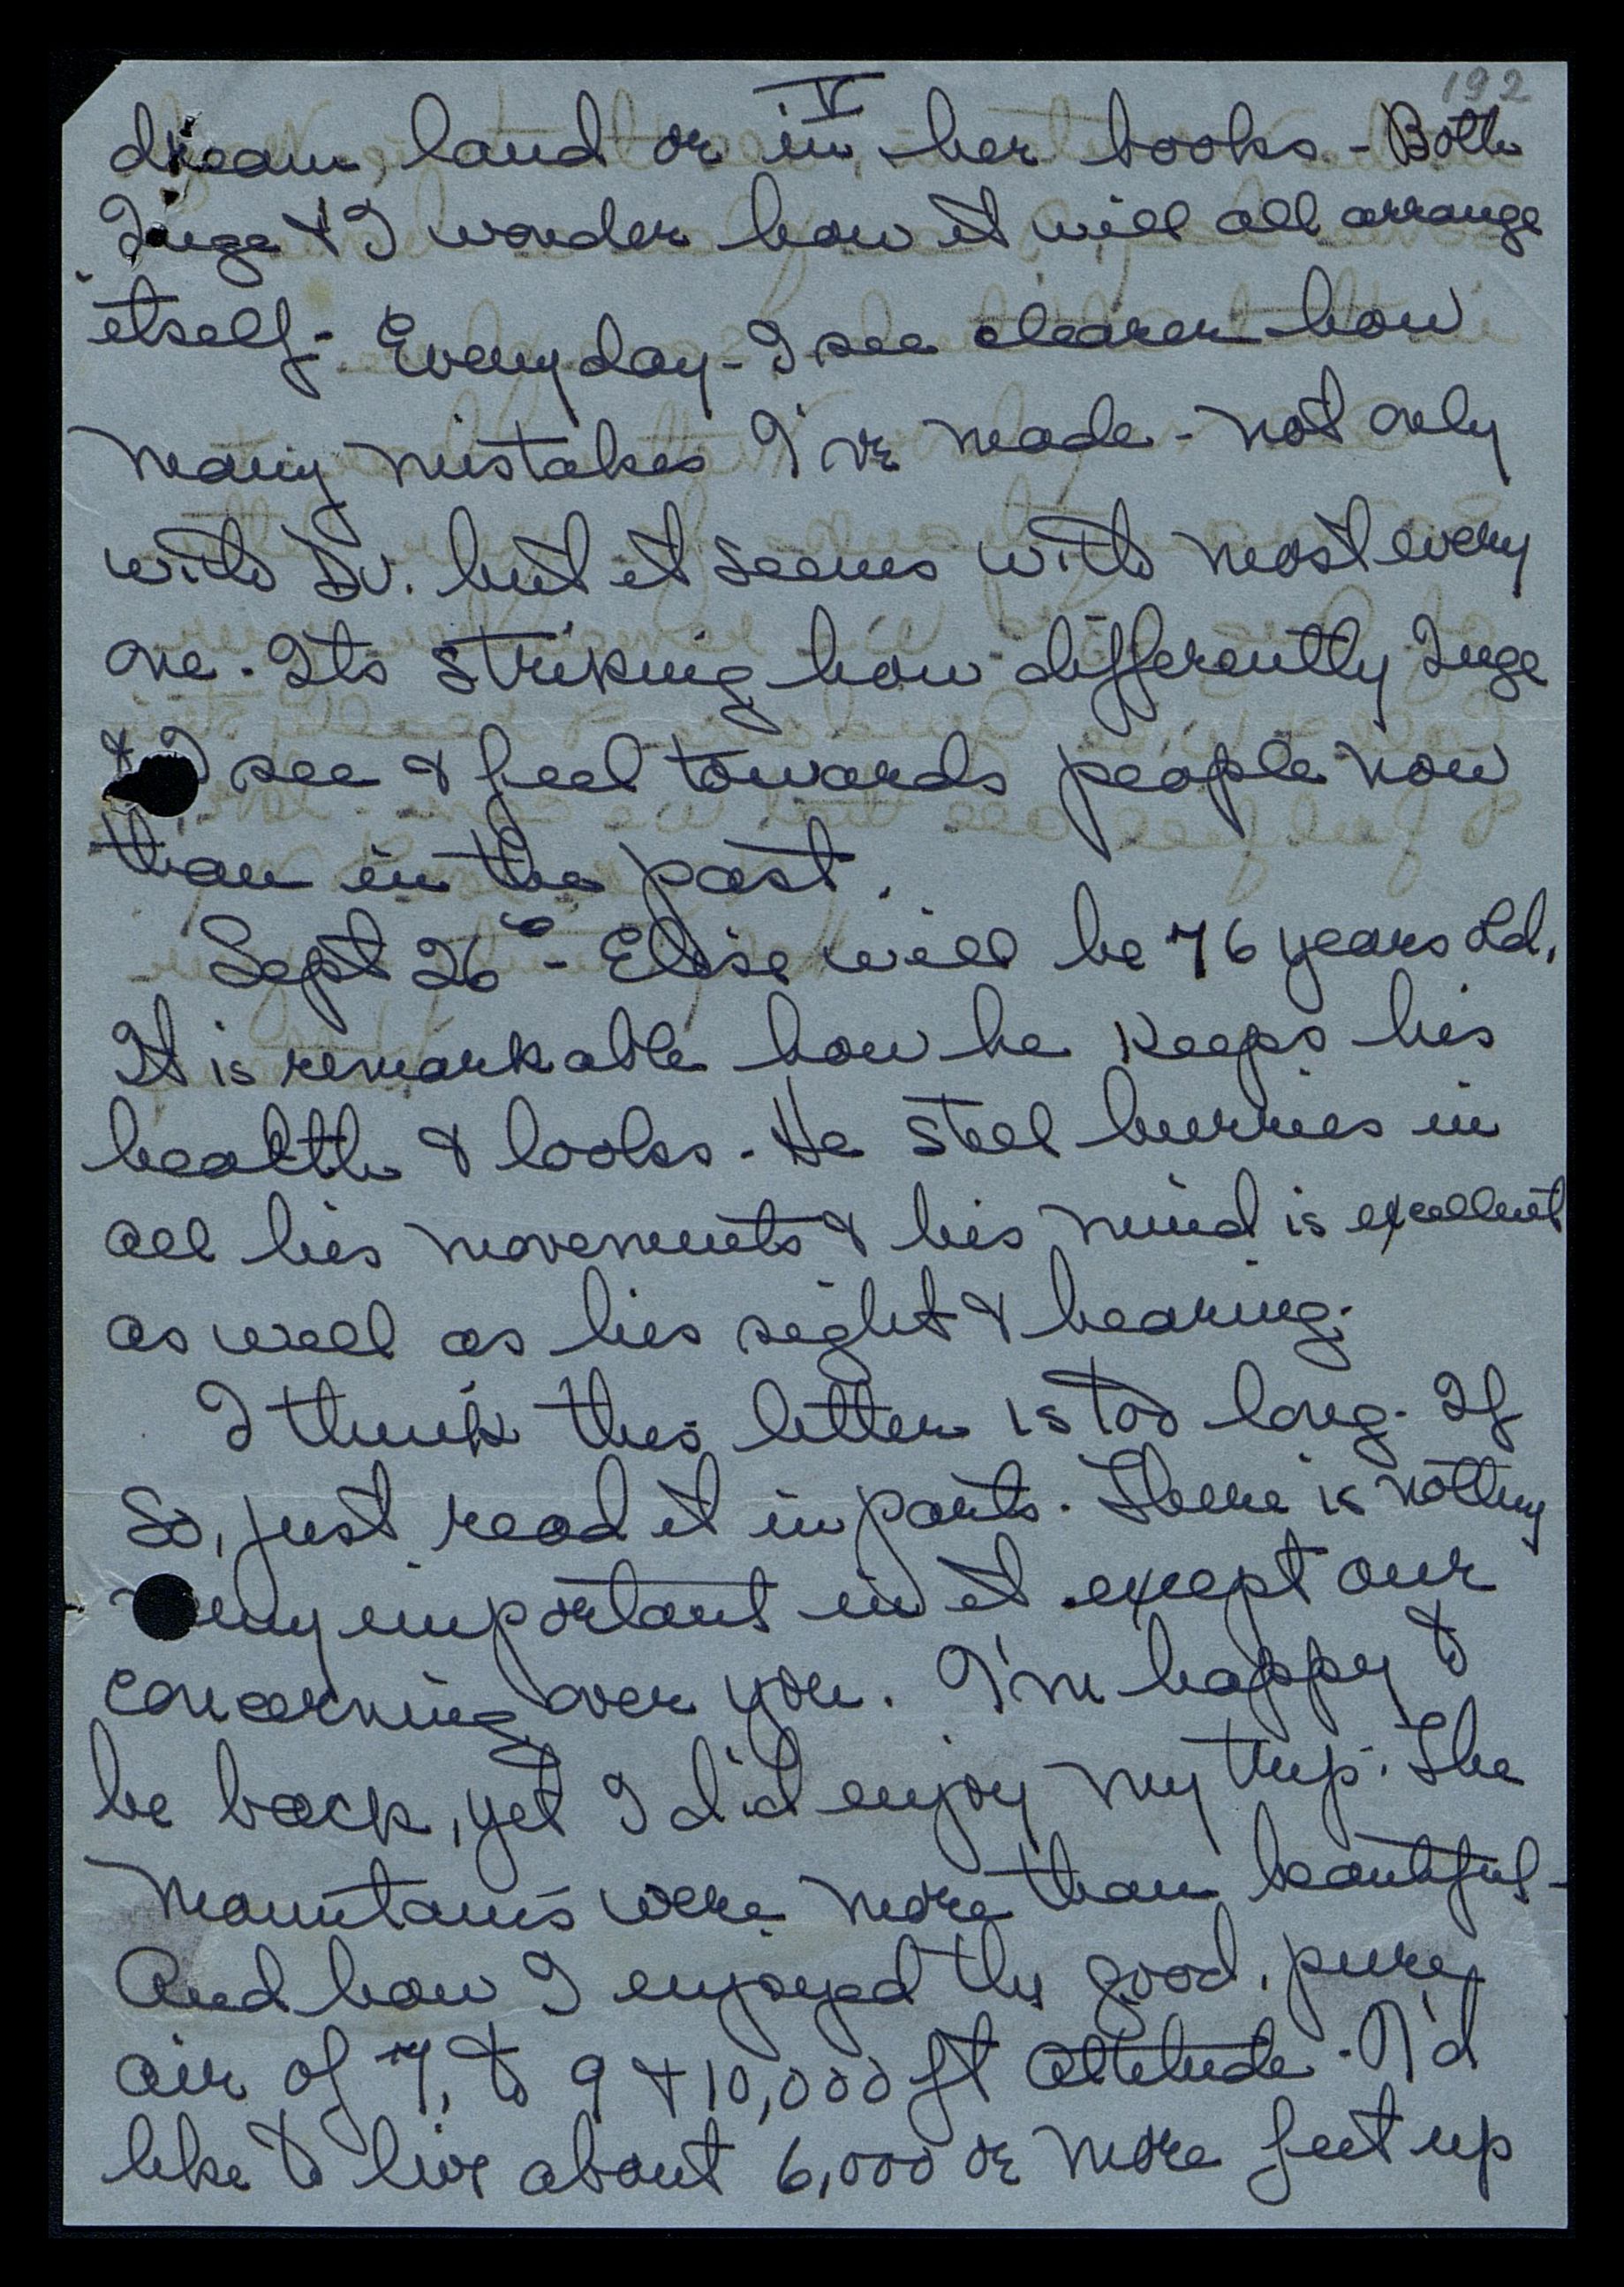 192
V
dream, land or in her books - Both
Inge & I wonder how it will all arrange
itself - Every day - I see clearer how
many mistakes I've made - not only
with Dv. but it seems with most every
one. Its striking how differently Inge
& I see & feel towards people now
than in the past.
Sept 26th - Elise will be 76 years old.
It is remarkable how he keeps his
health & looks. He still hurries in
all his movements & his mind is excellent
as well as his sight & hearing.
I think this letter is too long. If
so, just read it in parts. There is nothing
very important in it except our
concerning over you. I'm happy to
be back, yet I did enjoy my trip. The
mountains were more than beautiful -
And how I enjoyed the good, pure,
air of 7, to 9 & 10,000 ft altitude. I'd
like to live about 6,000 or more feet up